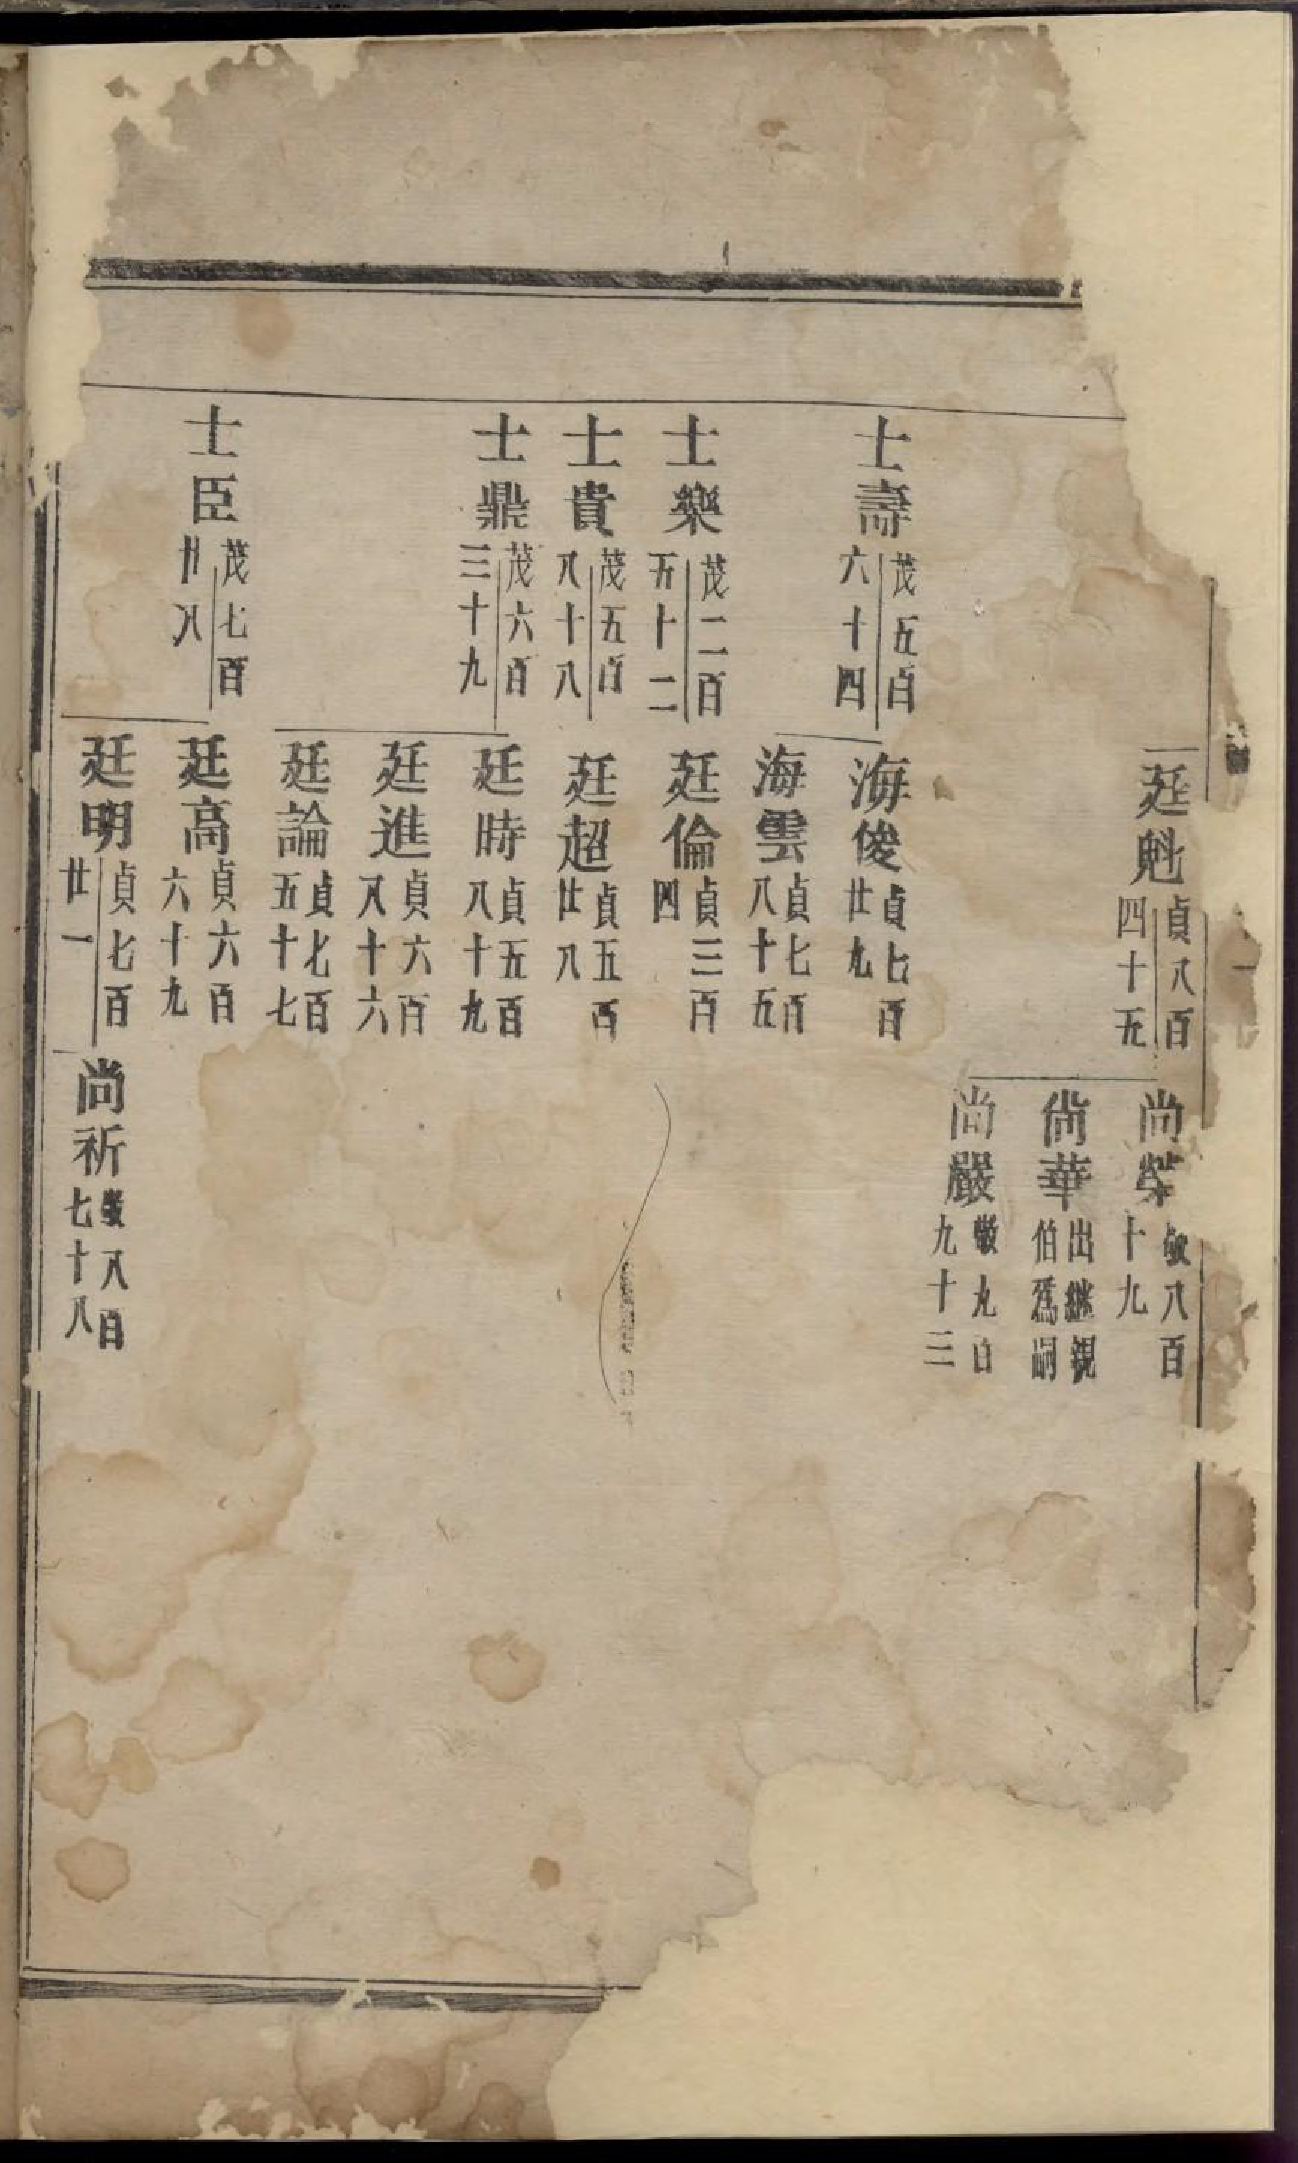 廷魁 貞八百四十五
尚榮 敬八百十九
尚華 出継親伯爲嗣
尚嚴 敬九百九十三
士壽 茂五百六十四
海俊 貞七百廿九
海雲 貞七百八十五
士樂 茂二百五十二
廷倫 貞三百四
士貴 茂五百八十八
廷超 貞五百廿八
士鼎 茂六百三十九
廷時 貞五百八十九
廷進 貞六百八十六
廷論 貞七百五十七
士臣 茂七百廿八
廷高 貞六百六十九
廷明 貞七百廿一
尚祈 敬八百七十八